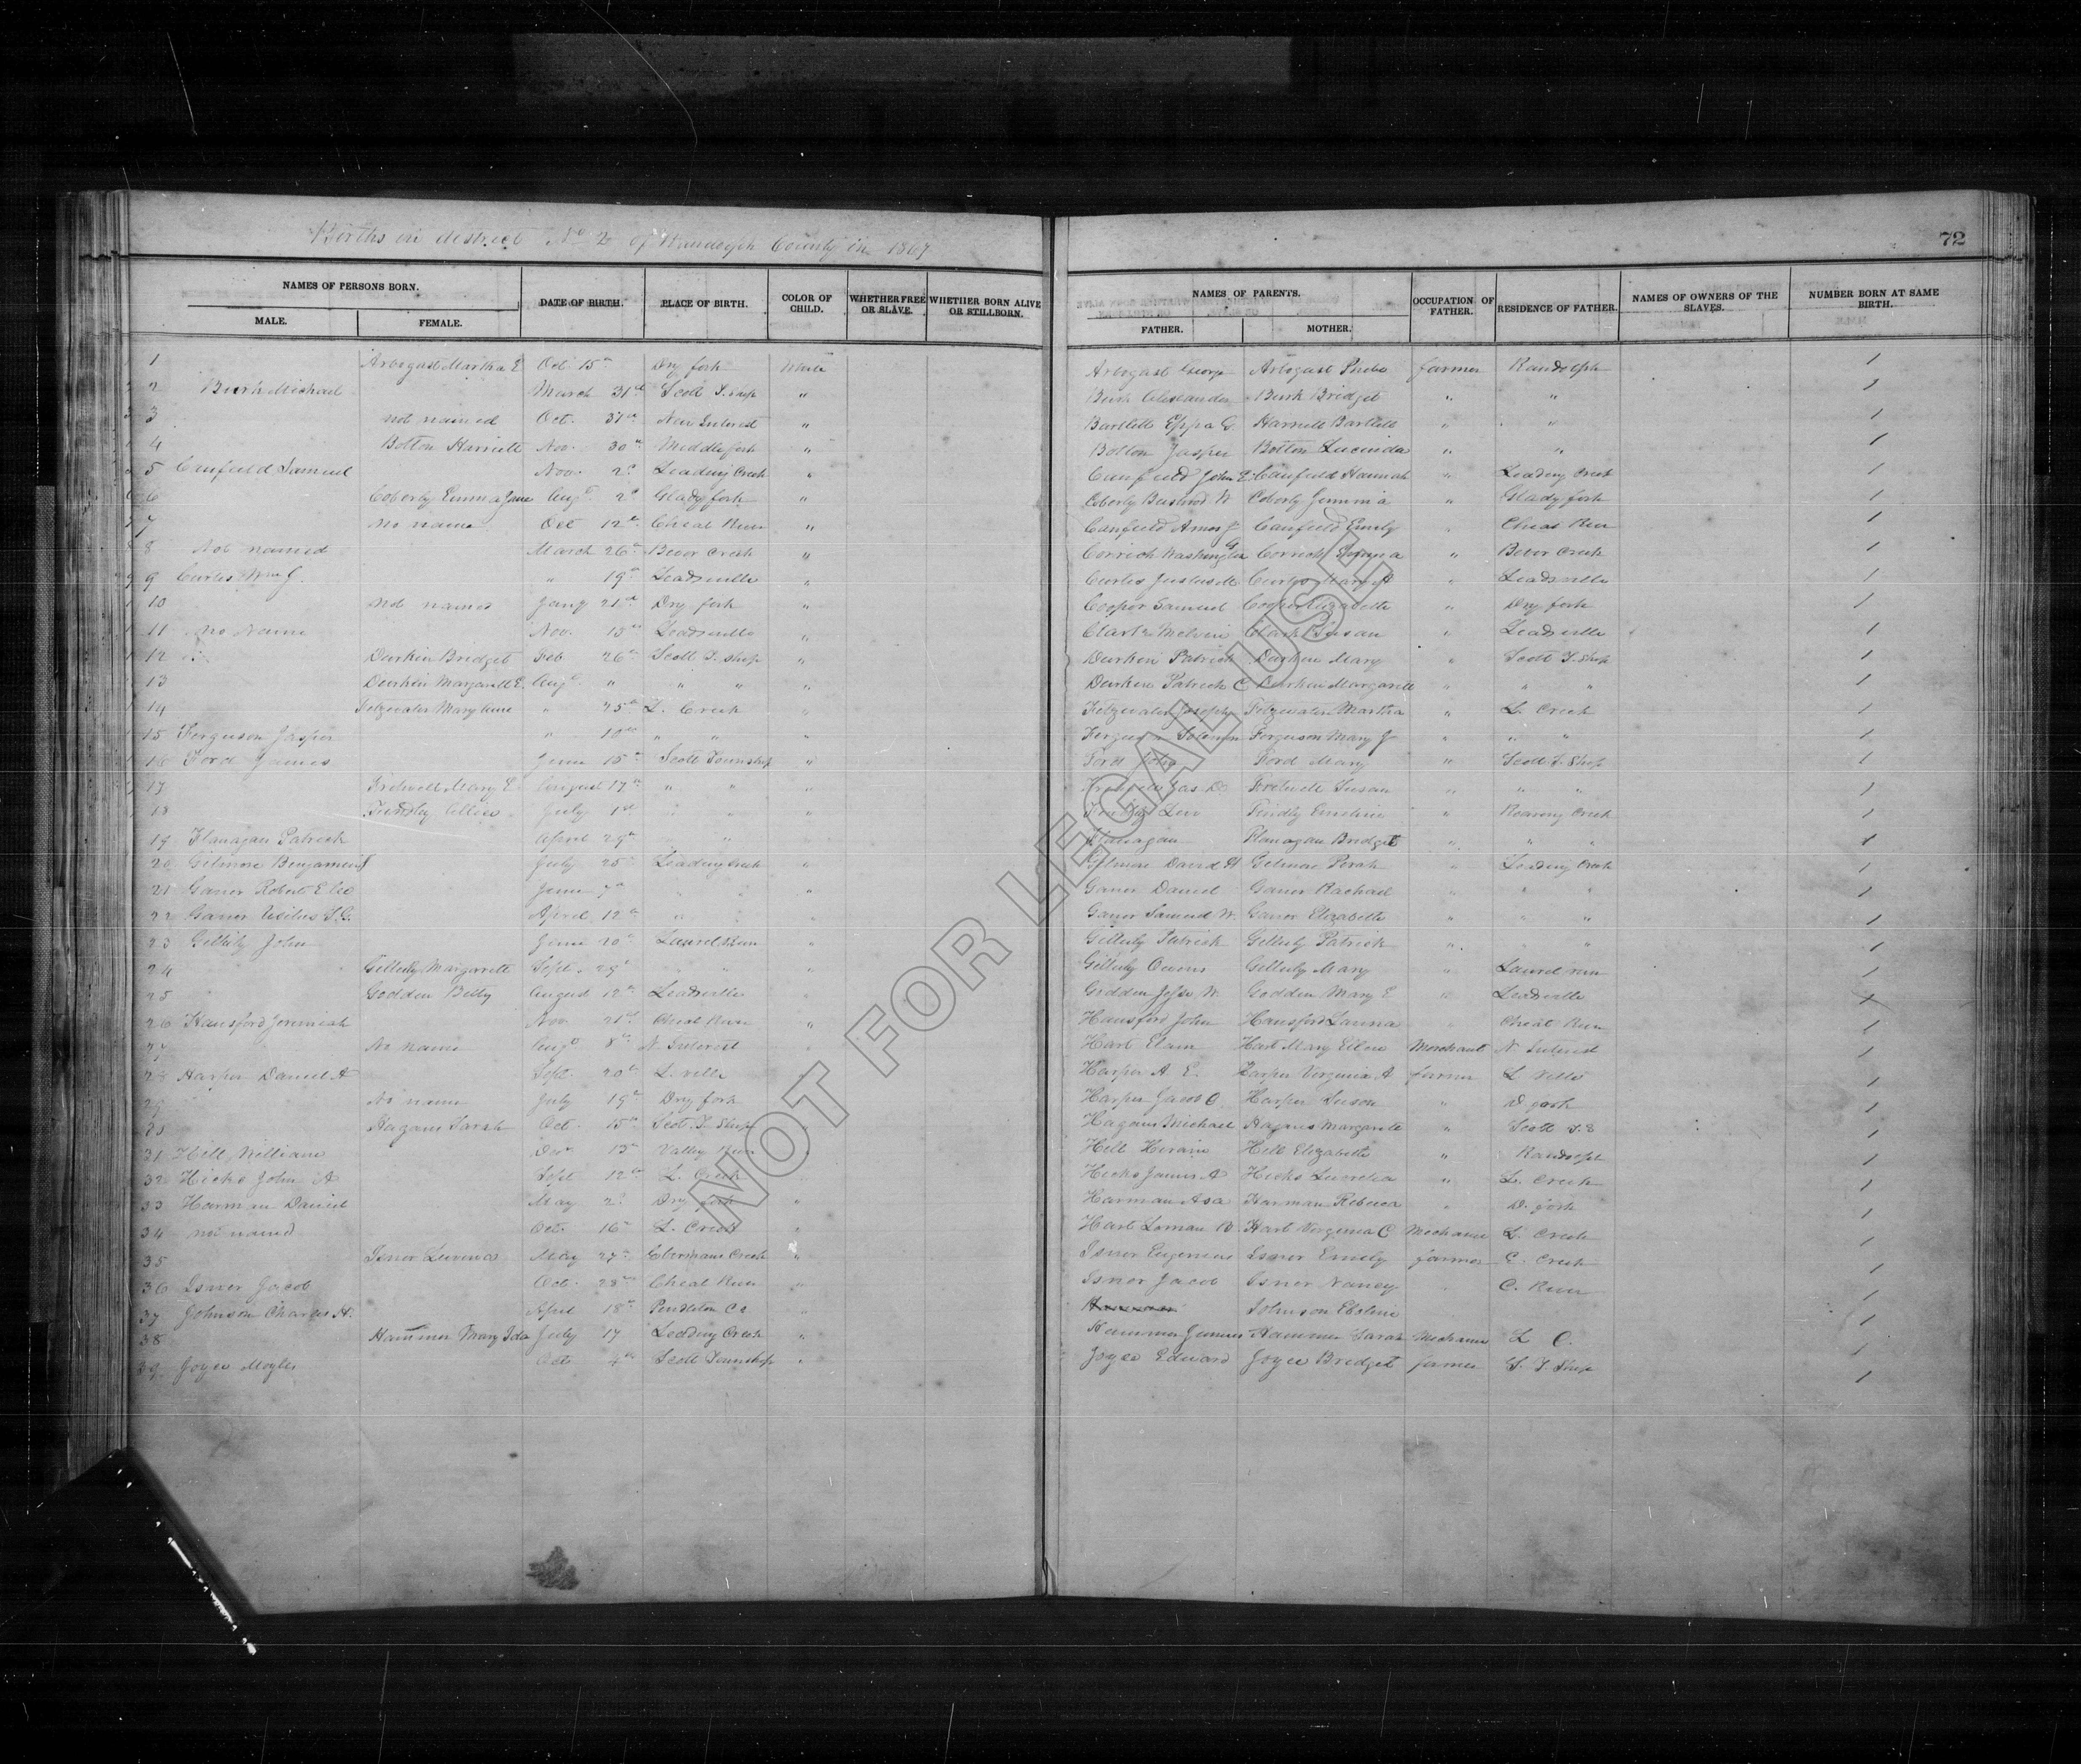 Births in district No 2 of Randolph County in 1867
72
NAMES OF PERSONS BORN.
MALE. FEMALE. DATE OF BIRTH. PLACE OF BIRTH. COLOR OF CHILD. WHETHER FREE OR SLAVE. WHETHER BORN ALIVE OR STILLBORN. NAMES OF PARENTS. FATHER. MOTHER. OCCUPATION OF FATHER. RESIDENCE OF FATHER. NAMES OF OWNERS OF THE SLAVES. NUMBER BORN AT SAME BIRTH.
1 Arbogast Martha E Oct 15th Dry fork White Arbogast George Arbogast Phebe farmer Randolph 1
2 Burk Michael March 31st Scott T. ship " Burk Burk Bridget " " 1
3 not named Oct. 31st New Interest " Bartlett Eppa G. Harriett Bartlett " " 1
4 Bolton Harriett Nov. 30th Middle fork " Bolton Jasper Bolton Lucinda " " 1
5 Canfield Samuel Nov. 2d Leading Creek " Canfield John E Canfield Hannah " Leading Creek 1
6 Coberly Emma Jane Augt 2d Glady fork " Coberly Bushrod W Coberly Jemima " Glady fork 1
7 no name Oct 12th Cheat River " Canfield Amos J Canfield Emily " Cheat River 1
8 Not named March 26th Bever Creek " Corrick Washington Corrick " Bever Creek 1
9 Curtis Wm J. " 19th Leadsville " Curtis Justus M. Curtis Mary A " Leadsville 1
10 not named Jany 21st Dry fork " Cooper Samuel Cooper Elizabeth " Dry fork 1
11 No Name Nov. 13th Leadsville " Clark Melvin Clark Susan " Leadsville 1
12 Durkin Bridget Feb 26th Scott T. ship " Durkin Patrick Durkin Mary " Scott T. Ship 1
13 Durkin Margarett E. Augt " " " " Durken Patrick C Durken Margarett " " " 1
14 Fitzwater Mary Anne " 25th L. Creek " Fitzwater Joseph Fitzwater Martha " L. Creek 1
15 Ferguson Jasper " 10th " " " Ferguson Solomon Ferguson Mary J " " " 1
16 Ford James June 15th Scott Township " Ford John Ford Mary " Scott T. Ship 1
17 Fretwell Mary E August 17th " " " Fretwell Jas D. Fretwell Susan " " " 1
18 Findley July 1st " " " Findly Levi Findly Emeline " Roaring Creek 1
19 Flanagan Patrick April 29th " " Flanagan Flanagan Bridget " " " 1
20 Gilmore Benjamin F July 25th Leading Creek " Gilmore David H Gilmore " Leading Creek 1
21 Ganer Robert E Lee June 7th " " " Ganer Daniel Ganer Rachael " " 1
22 Ganer T. G. April 12th " " " Ganer Samuel W. Ganer Elizabeth " " " 1
23 Gilluly John June 20th Laurel Run " Gilluly Patrick Gilluly Patrick " " 1
24 Gilluly Margarett Sept. 29th " " " Gilluly Owens Gilluly Mary " Laurel run 1
25 Godden Betty August 12th Leadsville Godden Jesse W. Godden Mary E " Leadsville 1
26 Hansford Jeremiah Nov 21st Cheat River " Hansford John Hansford Laurna Cheat River 1
27 No name Augt 8th N. Interest Hart Elam Hart Mary Ellen Merchant N. Interest 1
28 Harper Daniel A Sept. 20th L. ville Harper A. E. Harper Virginia A farmer L Ville 1
29 No name July 19th Dry fork Harper Jacob C Harper Susan " D. fork 1
30 Hagans Sarah Oct. 15th Scot. T. Ship Hagans Michael Hagans Margarete " Scott T. S 1
31 Hill William Dec 13 Valley River Hill Hiram Hill Elizabeth " Randolph 1
32 Hicks John A Sept 12th L. Creek Hicks James A Hicks Lucretia " L. Creek 1
33 Harman Daniel May 2d Dry fork " Harman Asa Harman Rebecca " D. fork 1
34 not named Oct. 16th L. Creek " Hart Loman B. Hart Virginia C Mechanic L. Creek 1
35 Isner Lurena May 27th Chermans Creek " Isner Eugenius Isner Emily farmer C. Creek 1
36 Isner Jacob Oct. 28th Cheat River " Isner Jacob Isner Nancy " C. River 1
37 Johnson Charles H. April 18th Pendleton Co Johnson 1
38 Hammer Mary Ida July 17 Leading Creek " Hammer Hammer Sarah Mechanic L C. 1
39 Joyce Myles Oct. 4th Scott Township " Joyce Edward Joyce Bridget farmer S. T. Ship 1
NOT FOR LEGAL USE